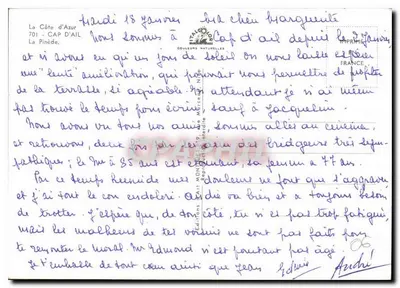 La Côte d'Azur
701 - CAP D'AIL
La Pinède.
Mardi 18 Janvier
Ma chère Marguerite
Nous sommes à Cap d'ail depuis le 7 Janvier
et si nous en qu'un peu de soleil on nous laisse
une "lente" amélioration, qui pourrait nous permettre de profiter
de la terrasse, si agréable. En attendant je n'ai même
pas trouvé le temps pour écrire sauf à Jacqueline.
Nous avons vu tous nos amis, sommes allés au cinéma,
et retrouvons, deux bridgeurs très sym-
pathiques, le Mr a 85 ans et étonnant, sa femme a 77 ans.
Par ce temps humide mes douleurs ne font que s'aggraver
et j'ai tout le cou endolori. André va bien et a toujours besoin
de trotter. J'espère que, de ton côté, tu n'es pas trop fatiguée,
mais les malheurs de tes voisins ne sont pas faits pour
te remonter le moral. Mr Edmond n'est pourtant pas âgé.
Je t'embrasse de tout cœur ainsi que Jean
André
FRANCE